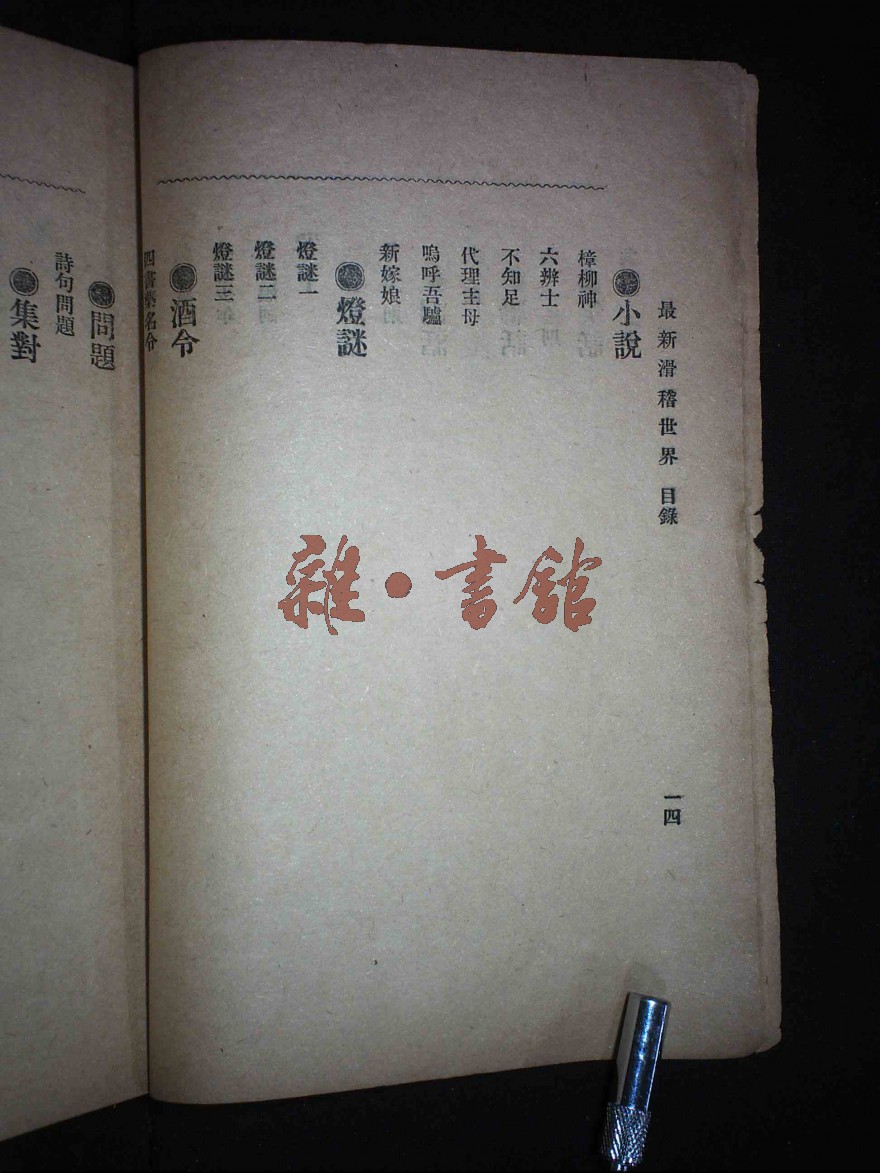 最新滑稽世界 目錄
一四
小說
樟柳神
六辨士
不知足
代理主母
嗚呼吾驢
新嫁娘
燈謎
燈謎一
燈謎二
燈謎三
酒令
四書藥名令
問題
詩句問題
集對
雜·書館